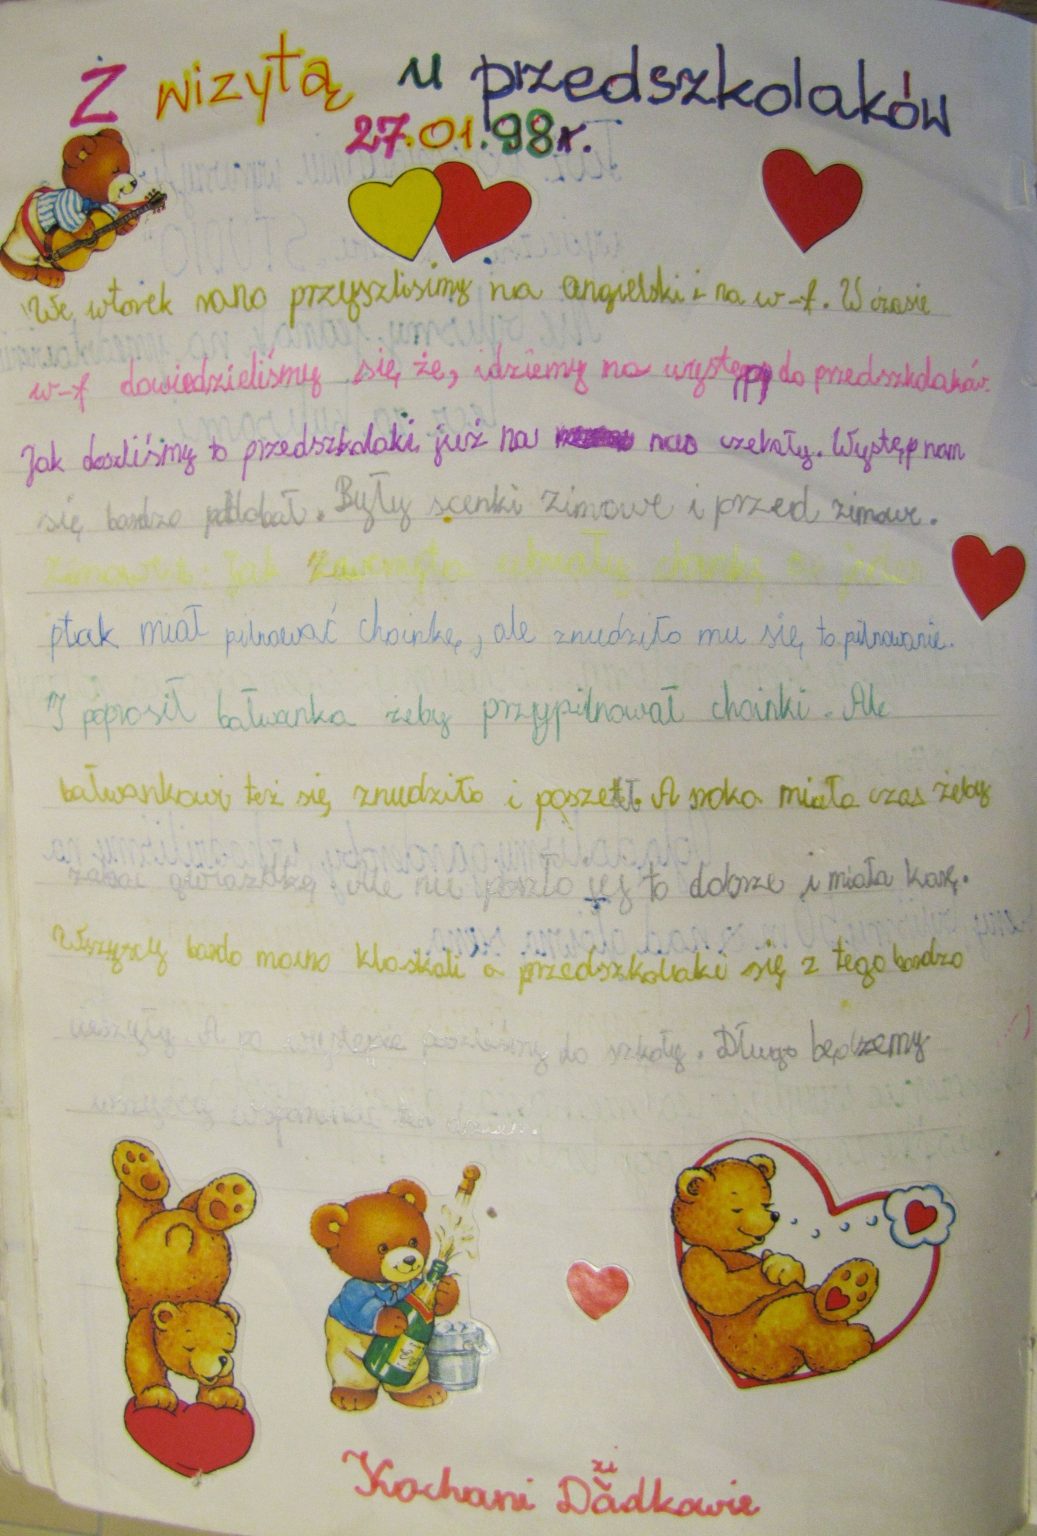 Z wizytą u przedszkolaków
27.01.98r.
We wtorek rano przyszlisimy na angielski i na w-f. W czasie
w-f dowiedzieliśmy się że, idziemy na występy do przedszkolaków.
Jak doszliśmy to przedszkolaki już na nas czekały. Występ nam
się bardzo podobał. Były scenki zimowe i przed zimowe.
Zimowe: Jak zwierzęta ubrały choinkę i jeden
ptak miał pilnować choinkę, ale znudziło mu się to pilnowanie.
I poprosił bałwanka żeby przypilnował choinki. Ale
bałwankowi też się znudziło i poszedł. A sroka miała czas żeby
zabrać gwiazdkę. Ale nie poszło jej to dobrze i miała karę.
Wszyscy bardo mocno klaskali a przedszkolaki się z tego bardzo
ucieszyły. A po występie poszliśmy do szkoły. Długo będziemy
wszyscy wspominać ten dzień.
Kochani Dziadkowie